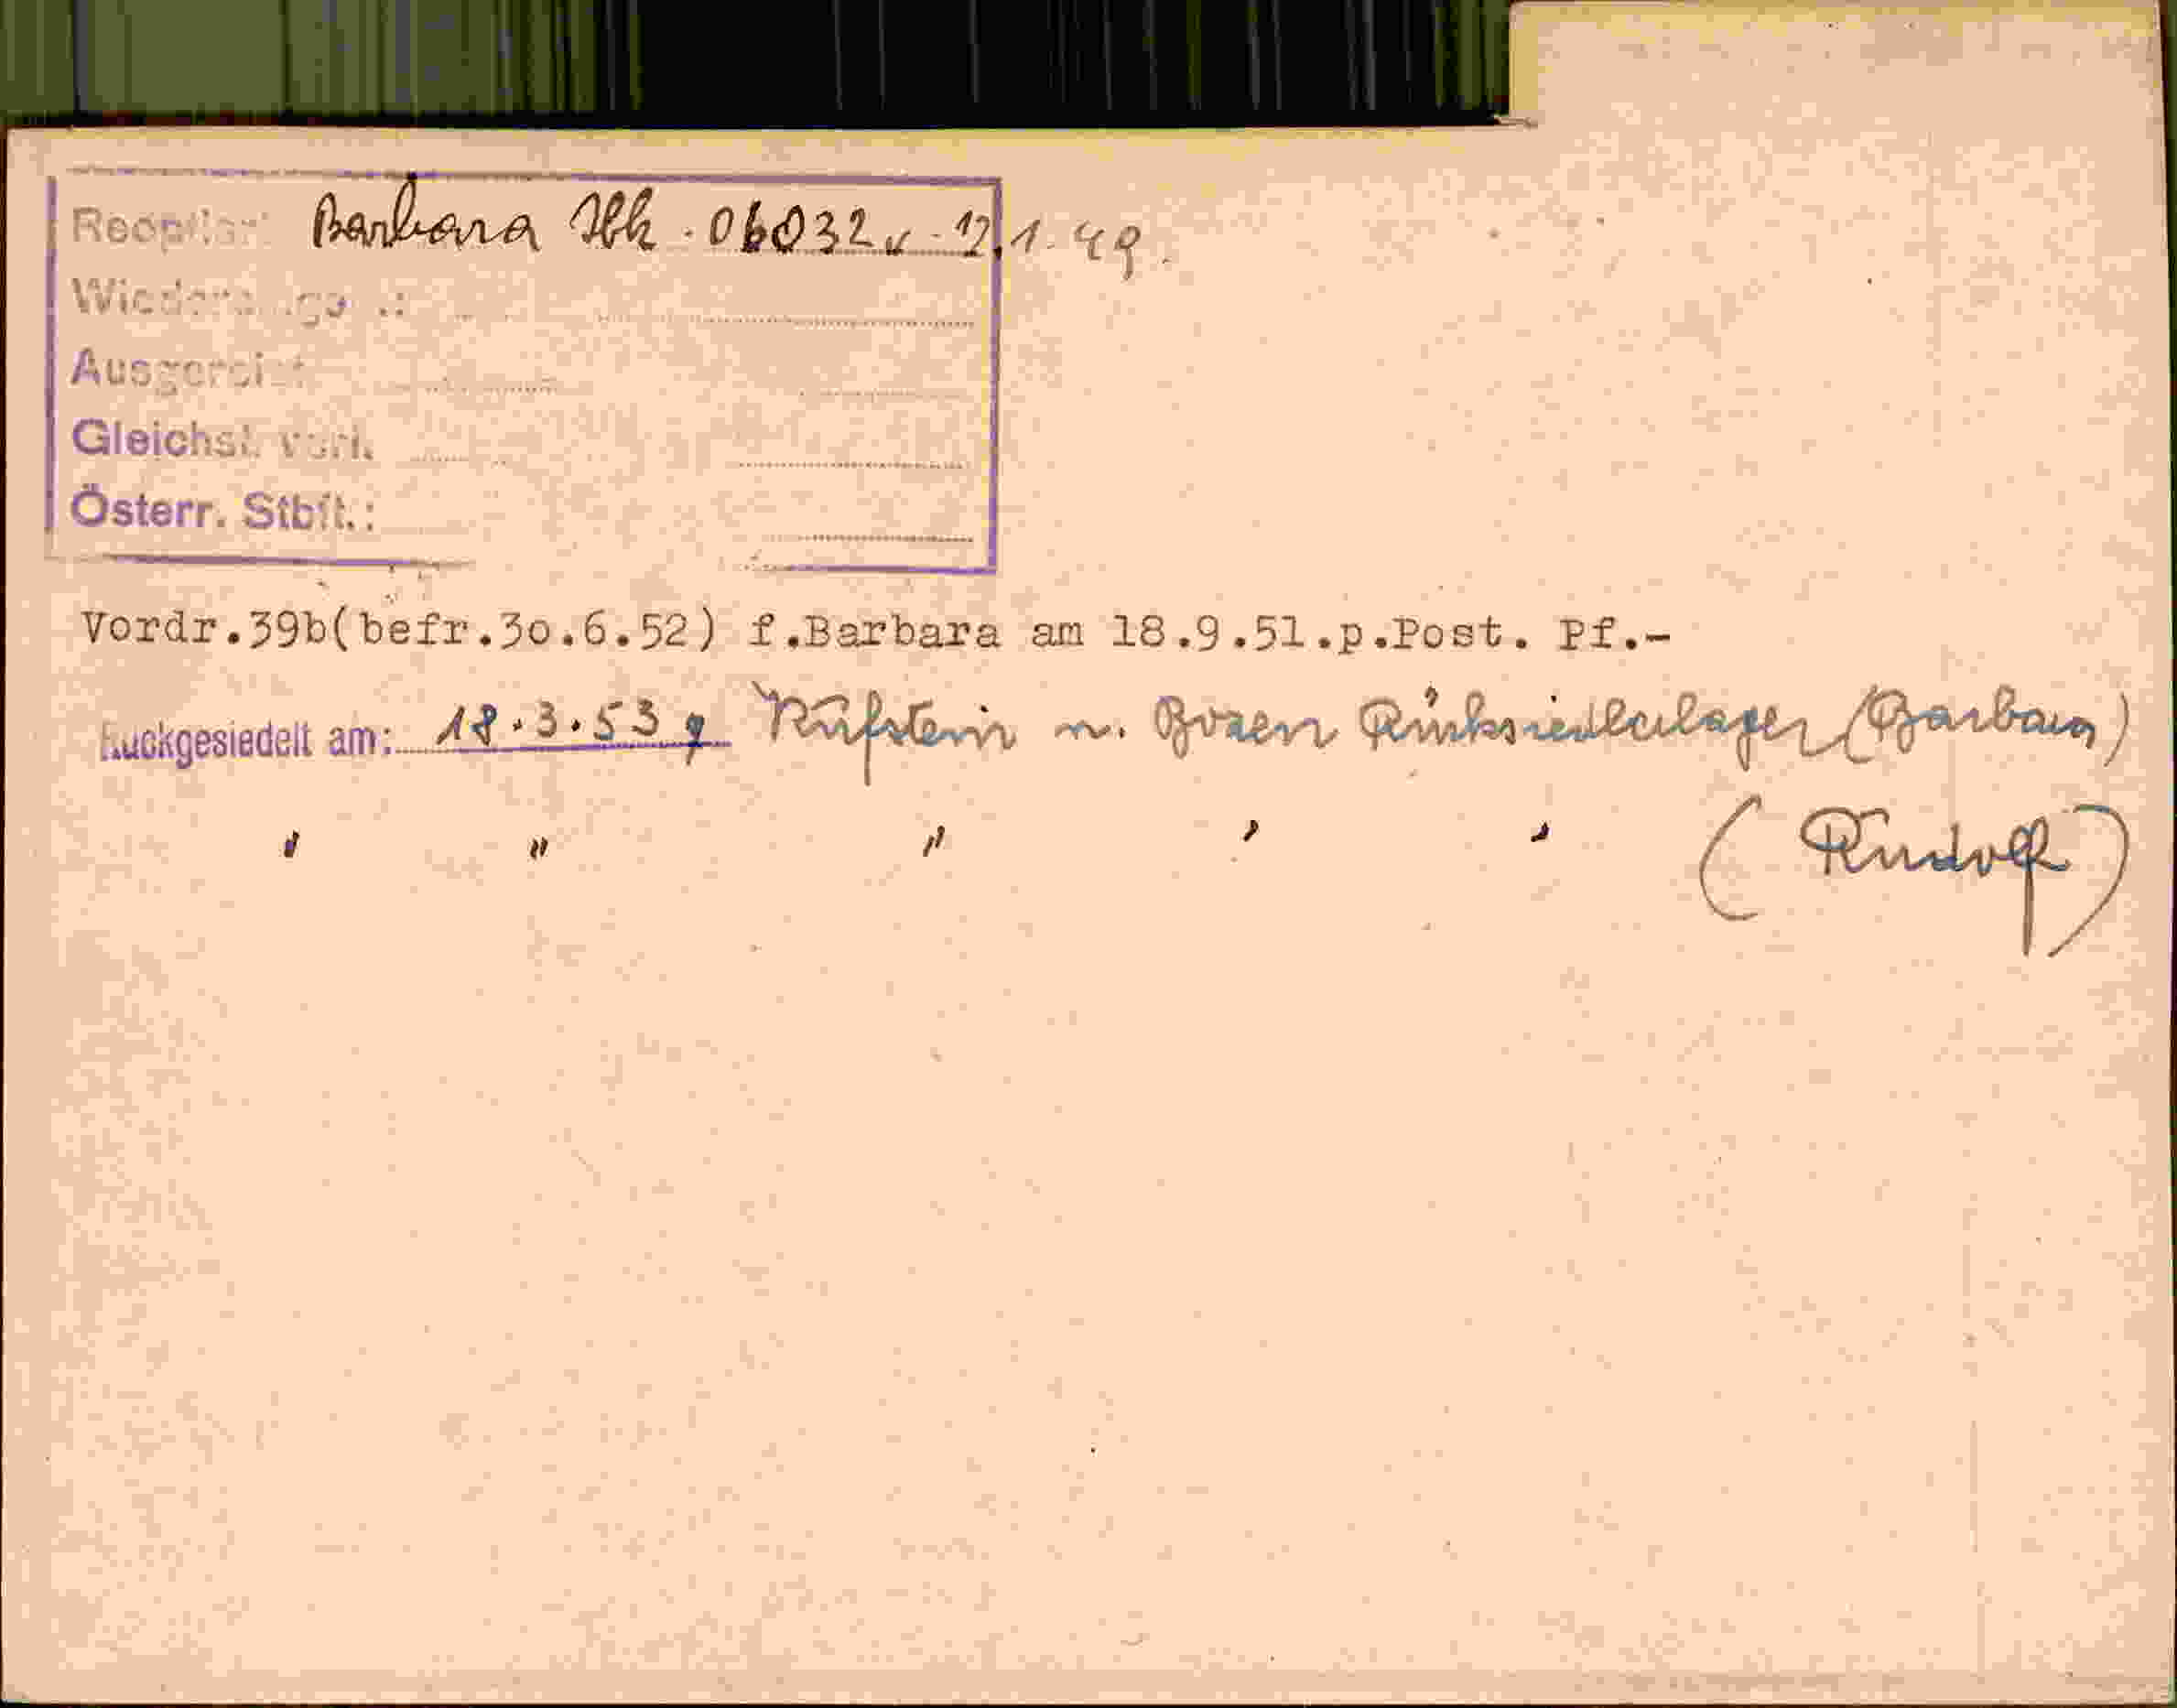 Reoptiert Barbara Ibk. 06032 v. 12.1.49.
Wiedereinge
Ausgereist
Gleichst. vorl.
Österr. Stbft.:
Vordr.39b(befr.30.6.52) f.Barbara am 18.9.51.p.Post. Pf.-
Rückgesiedelt am: 18.3.53 v. Kufstein n. Bozen Rücksiedlerlager (Barbara)
" " " " " (Rudolf)